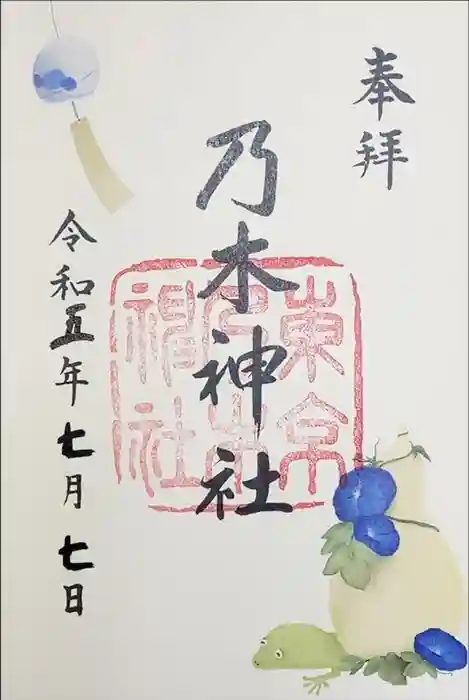 奉拝
乃木神社
東京
乃木
神社
令和五年七月七日